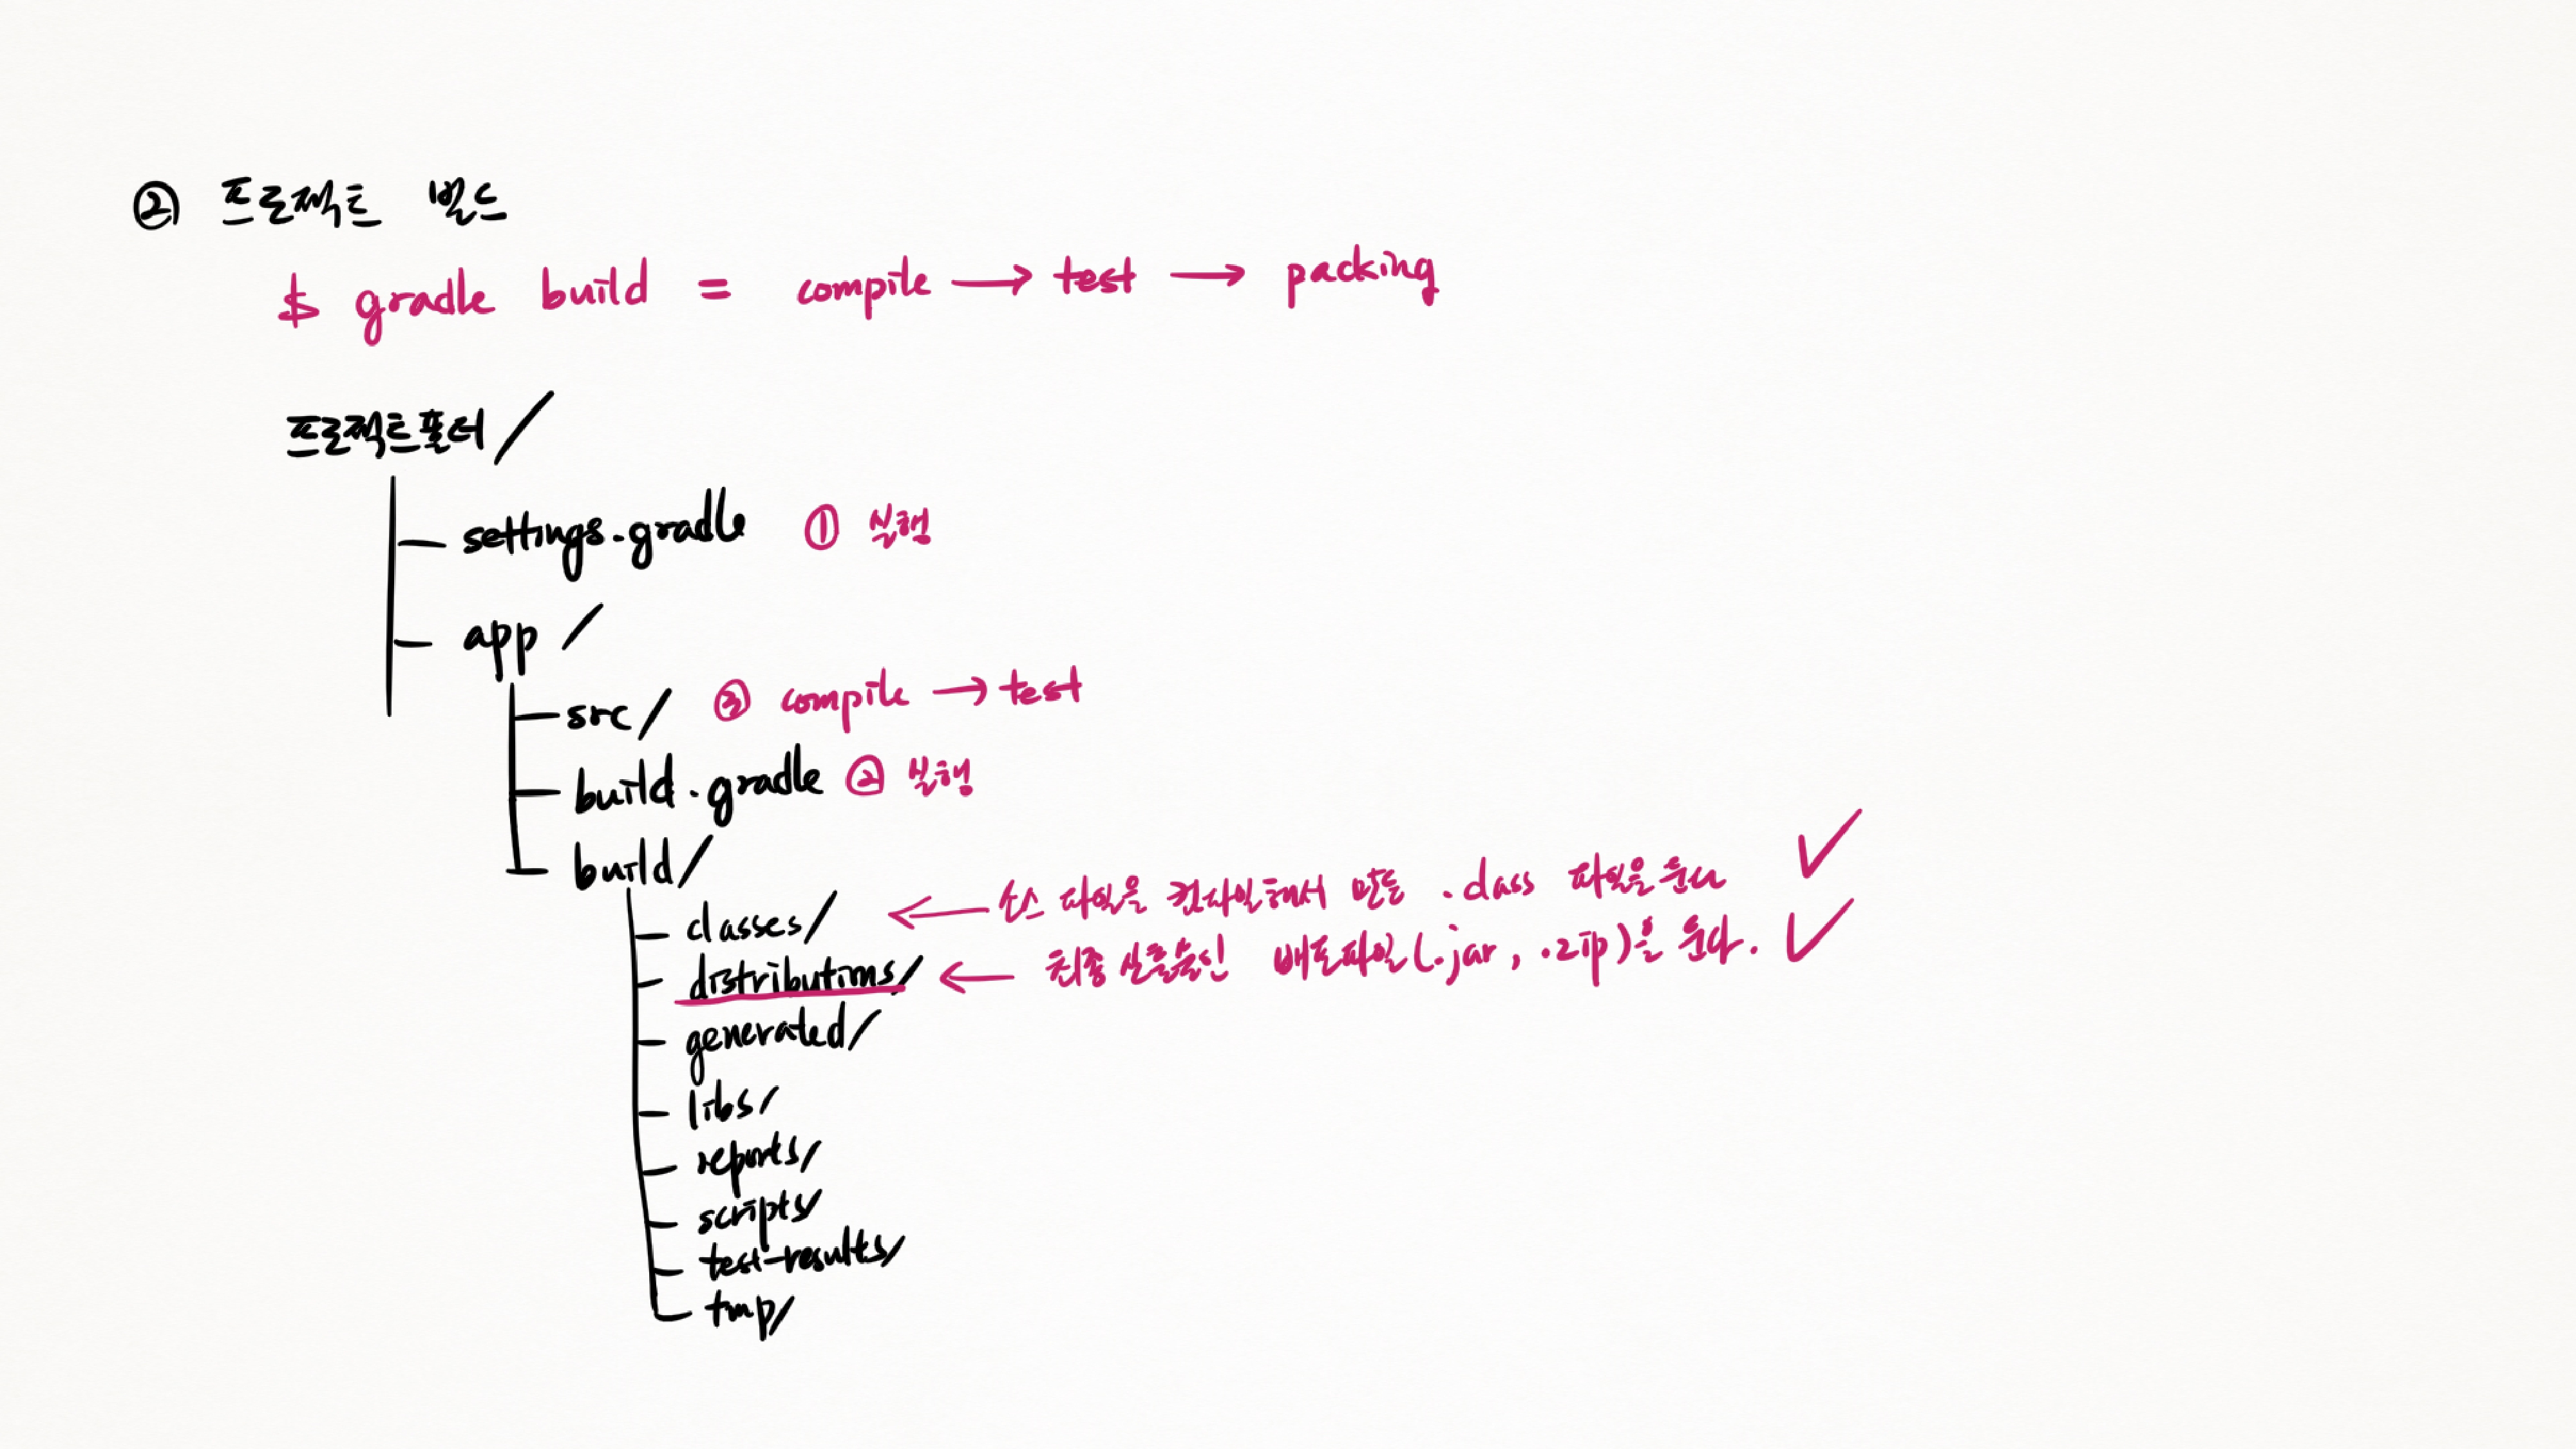 ② 프로젝트 빌드
$ gradle build = compile → test → packing
프로젝트폴더/
settings.gradle ① 실행
app/
src/ ③ compile → test
build.gradle ② 실행
build/
classes/ ← 소스 파일을 컴파일해서 만든 .class 파일을 둔다 ✓
distributions/ ← 최종 산출물인 배포파일(.jar, .zip)을 둔다. ✓
generated/
libs/
reports/
scripts/
test-results/
tmp/